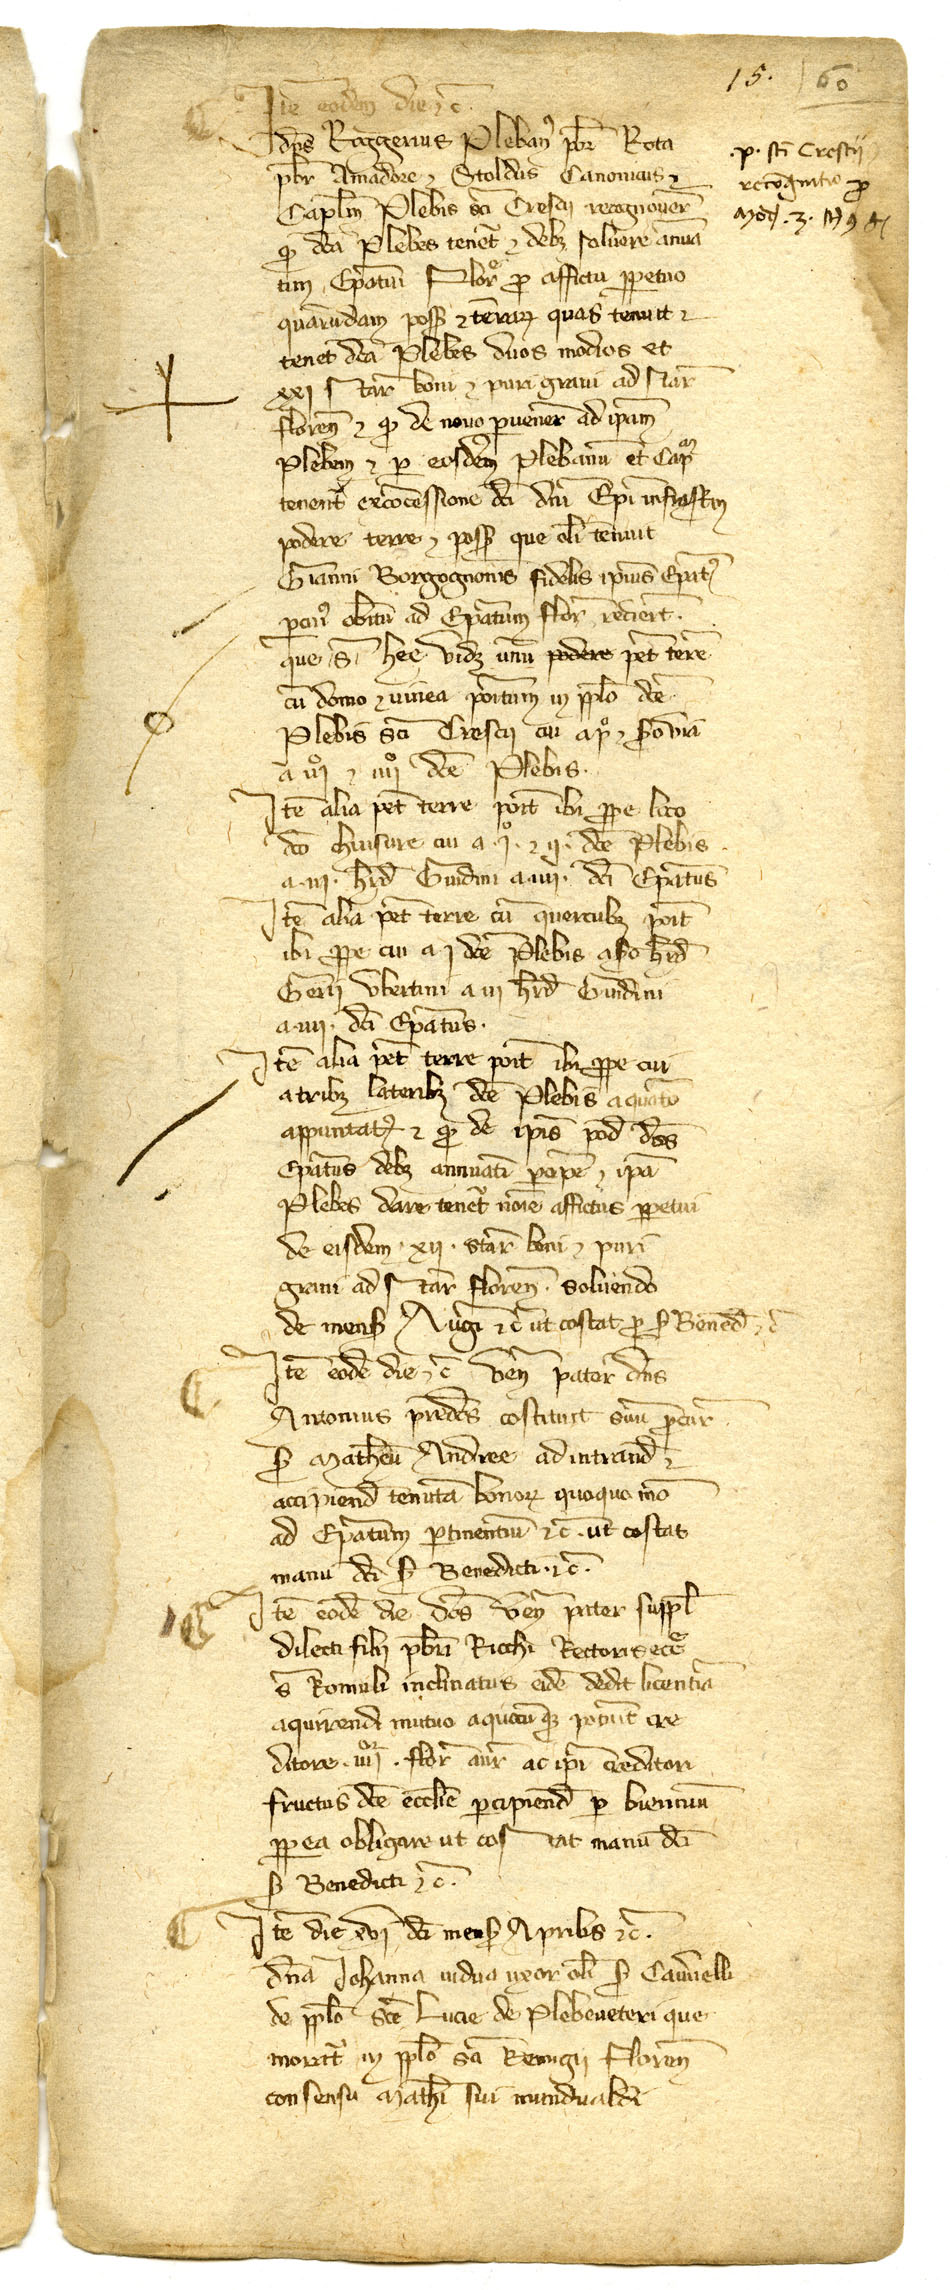 15. 60
Itē eodem die ⁊c̄.
dn̄s Roggerius Plebanꝰ pb̄r Rota
pb̄r Amadore ⁊ Stoldus Canonicus ⁊
Capl̄m Plebis sc̄i Cresci recognouer̄
ꝙ dc̄a Plebes tenet̄ ⁊ debꝫ soluere annua
tim Ep̄atui Florͤ ꝓ affictu ꝑpetuo
quarūdam poss̄ ⁊ terraꝝ quas tenuit ⁊
tenet dc̄a Plebes duos modios et
xxj star̄ boni ⁊ puri grani ad star̄
floren̄ ⁊ ꝙ de nouo ꝑuener̄ ad ip̄am
Plebem ⁊ ꝑ eosdem Plebanū et Cap̄
tenent̄ ex cōcessione dc̄i dn̄i Ep̄i infrascr̄
podere terre ⁊ poss̄ que oli tenuit
Gianni Borgognonis fidelis ip̄ius Ep̄atꝰ
ꝑ cuiꝰ obitū ad Ep̄atum flor̄ redier̄t.
que s̄ hec vidꝫ unū podere pet̄ terre
cū domo ⁊ uinea poitum in pp̄lo dc̄e
Plebis sc̄i Crescij cui a pͦ ⁊ sͦ via
a iijͦ ⁊ iiijͦ dc̄e Plebis.
Itē alia pet̄ terre poit̄ ibi ꝓpe loco
dc̄o chiusure cui a .jͦ. ⁊ ij. dc̄e Plebis.
a .iij. hr̄d Guidini a .iiij. dc̄i Ep̄atus
Itē alia pet̄ terre cū quercubꝫ poit̄
ibi ꝓpe cui a j dc̄e Plebis a sͦ hr̄d
Gerij Vbertini a iij hr̄d Guidini
a .iiij. dc̄i Ep̄atus.
Itē alia pet̄ terre poit̄ ibi ꝓpe cui
a tribꝫ lateribꝫ dc̄e Plebis a quarto
appuntatꝰ ⁊ ꝙ de ip̄is pod̄ dc̄s
Ep̄atus debꝫ annuatī ꝑcipe ⁊ ip̄a
Plebes dare tenet̄ noīe affictus ꝑpetui
de eisdem .xij. star̄ boni ⁊ puri
grani ad star̄ floren̄. soluendo
de mens̄ Auḡi ⁊c̄ ut costat ꝑ s̄ Bened̄ ⁊c̄
Itē eodē die ⁊c̄ Ven̄ pater dn̄s
Antonius predc̄s costituit suū ꝓcur̄
s̄ Matheū Andree ad intrand̄ ⁊
accipiend̄ tenutā bonoꝝ quoquo mō
ad Ep̄atum ꝑtinentiū ⁊c̄. ut costat
manu dc̄i s̄ Benedicti. ⁊c̄.
Itē eodē die dc̄s Ven̄ pater suppl̄
dilecti filij pb̄ri Ricchi Rectoris ecc̄e
s̄ Romuli inclinatus eidē dedit licentiā
aquirendi mutuo a quocūꝙ poterit cre
ditore .iiijͦʳ. flor̄ aur̄ ac ip̄i creditori
fructus dc̄e ecclīe ꝑcipiend̄ ꝑ biennium
ꝓpterea obligare ut costat manu dc̄i
s̄ Benedicti ⁊c̄.
Itē die xvj dc̄i mens̄ Aprilis ⁊c̄.
dn̄a Iohanna uidua uxor oli s̄
de pp̄lo sc̄e Lucie de Plebeueteri que
morat̄ in pp̄lo sc̄i Remigij Floren̄
consensu Mathei sui mundualdi
.p. sc̄i Crescij
recognitio ꝓ
mod̄. 3.